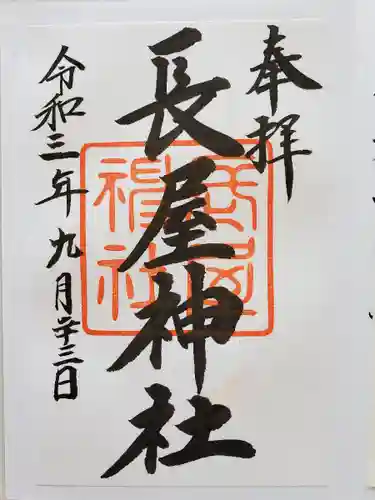 奉拝
長屋神社
令和三年九月廿三日
長屋
神社